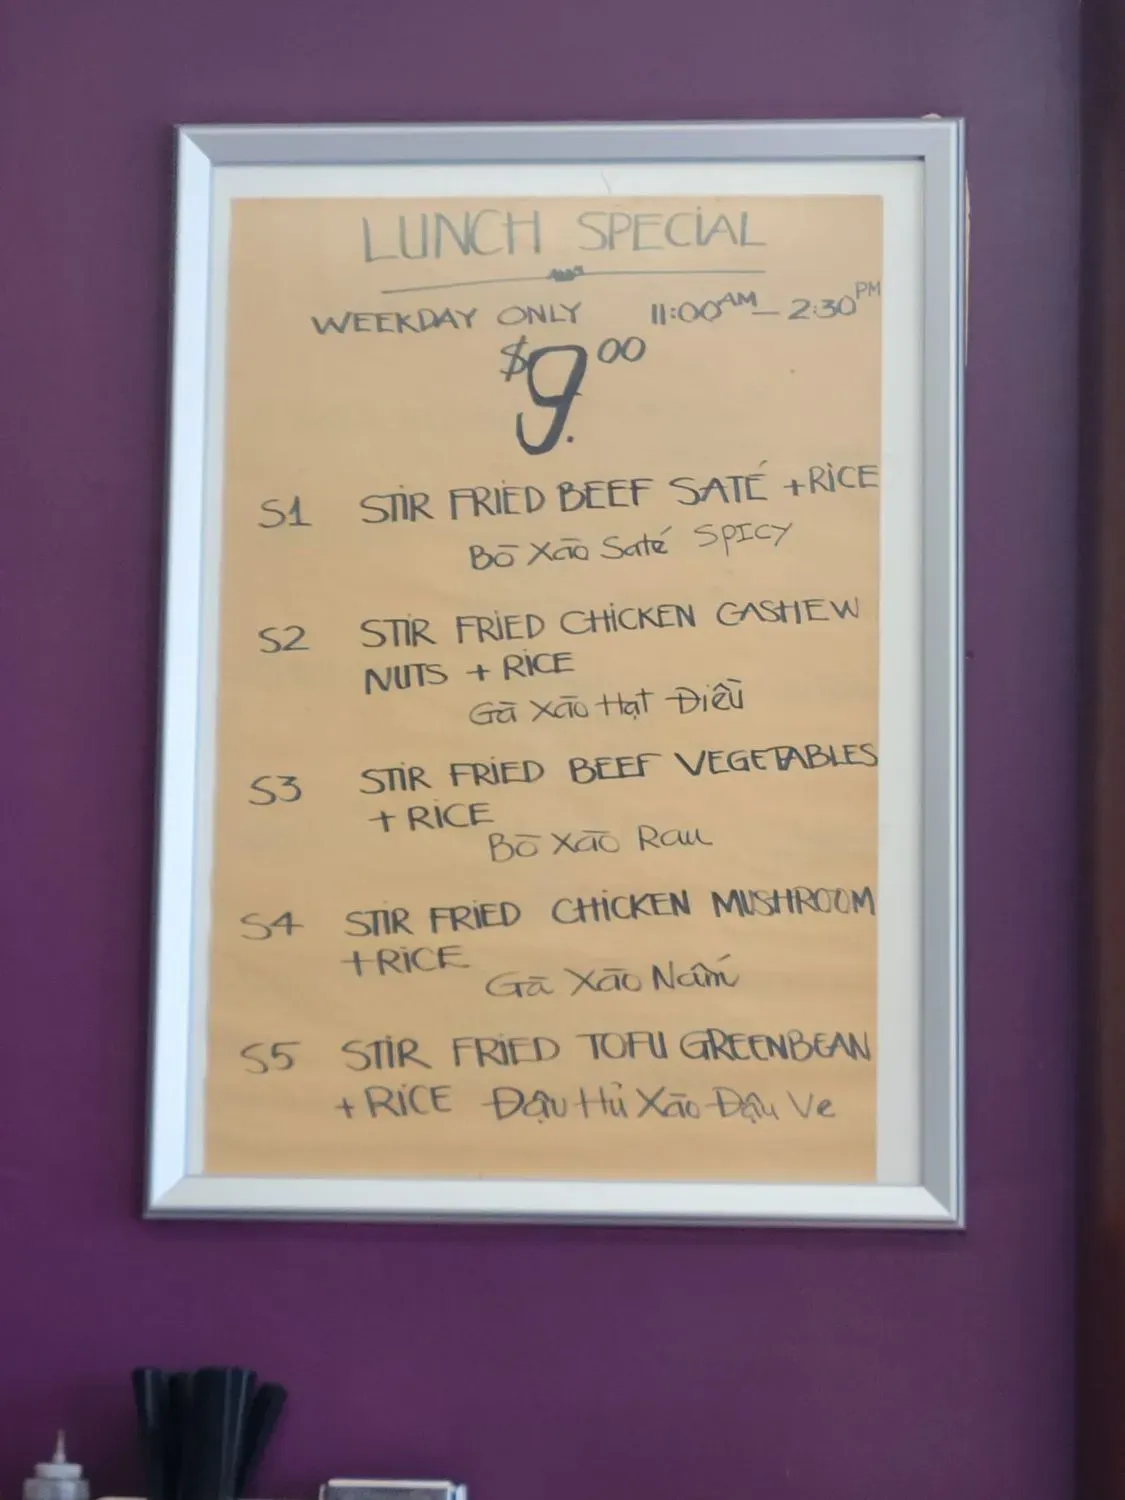 LUNCH SPECIAL
WEEKDAY ONLY 11:00AM - 2:30PM
$9.00
S1 STIR FRIED BEEF SATÉ + RICE
Bō Xāo Saté SPICY
S2 STIR FRIED CHICKEN CASHEW
NUTS + RICE
Gā Xāo Hạt Điều
S3 STIR FRIED BEEF VEGETABLES
+ RICE
Bō Xāo Rau
S4 STIR FRIED CHICKEN MUSHROOM
+ RICE
Gā Xāo Nấm
S5 STIR FRIED TOFU GREENBEAN
+ RICE Đậu Hủ Xāo Đậu Ve